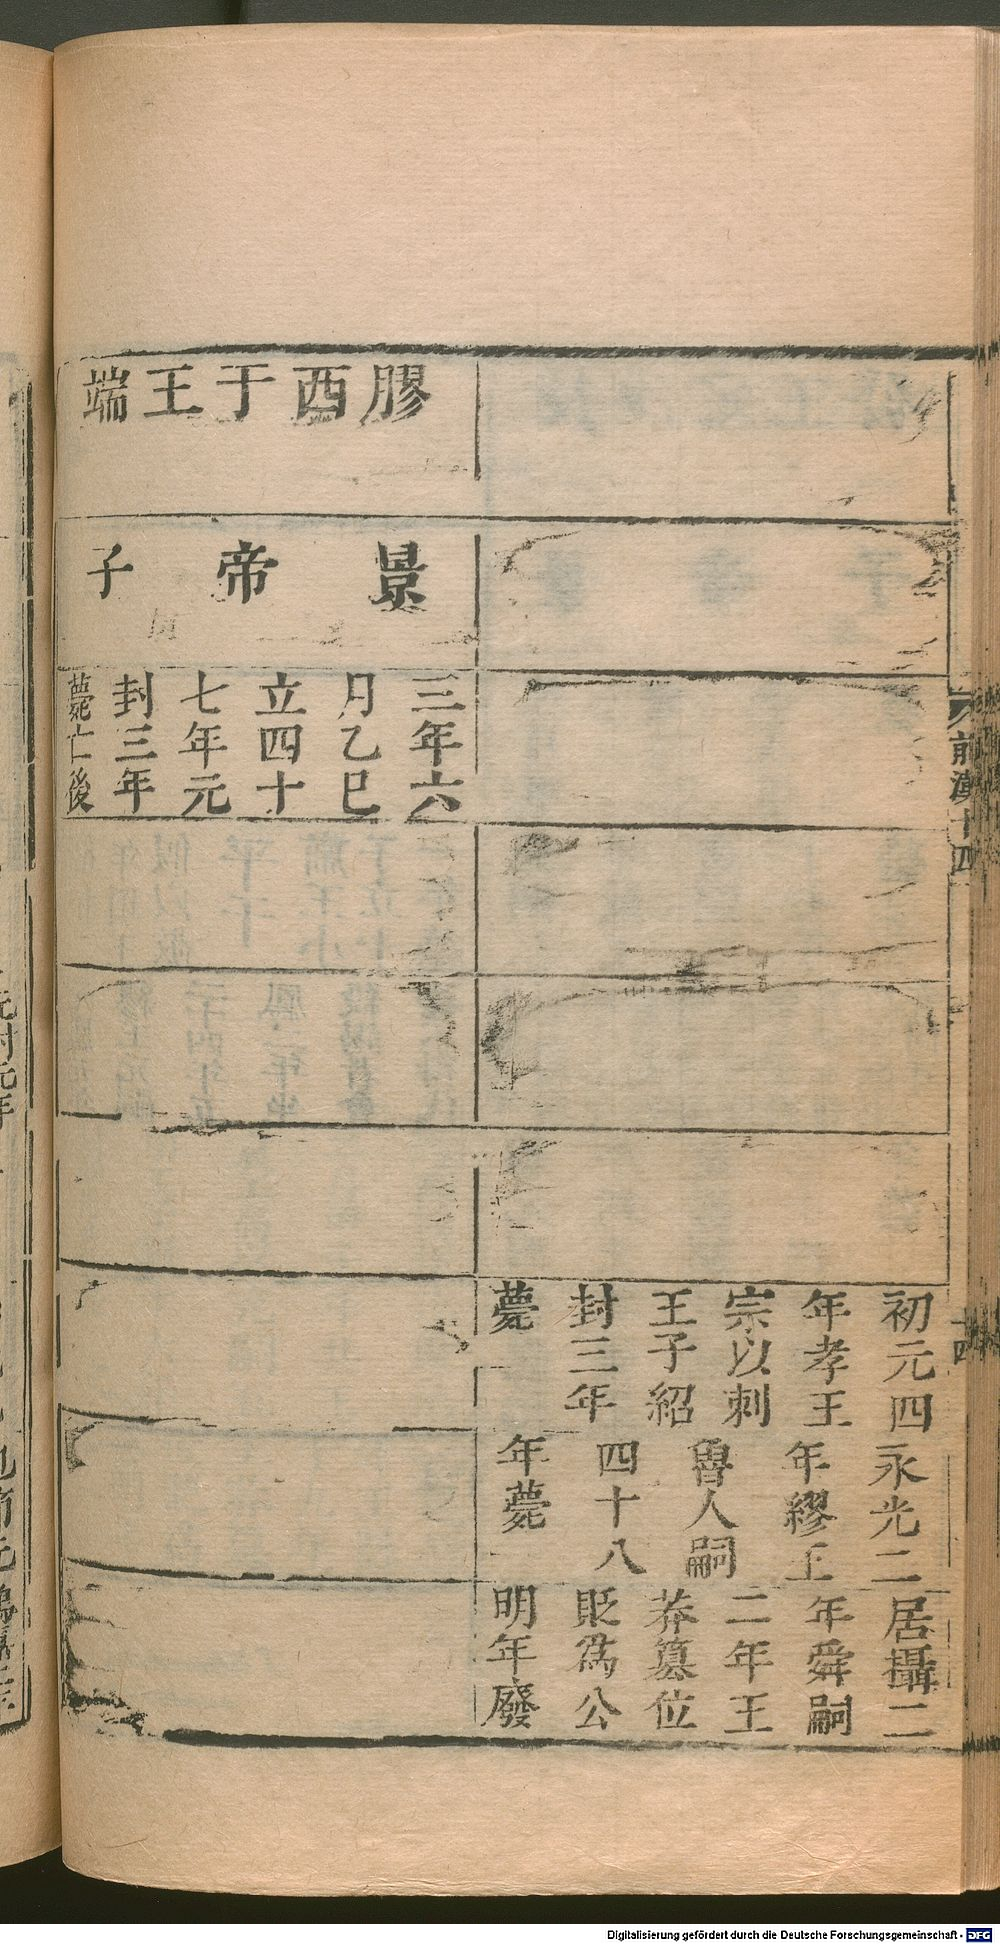 初元四
年孝王
宗以刺
王子紹
封三年
薨
永光二
年繆王
魯人嗣
四十八
年薨
居攝二
年舜嗣
二年王
莽篡位
貶爲公
明年廢
膠西于王端
景帝子
三年六
月乙巳
立四十
七年元
封三年
薨亡後
前漢十四
十四
Digitalisierung gefördert durch die Deutsche Forschungsgemeinschaft - DFG